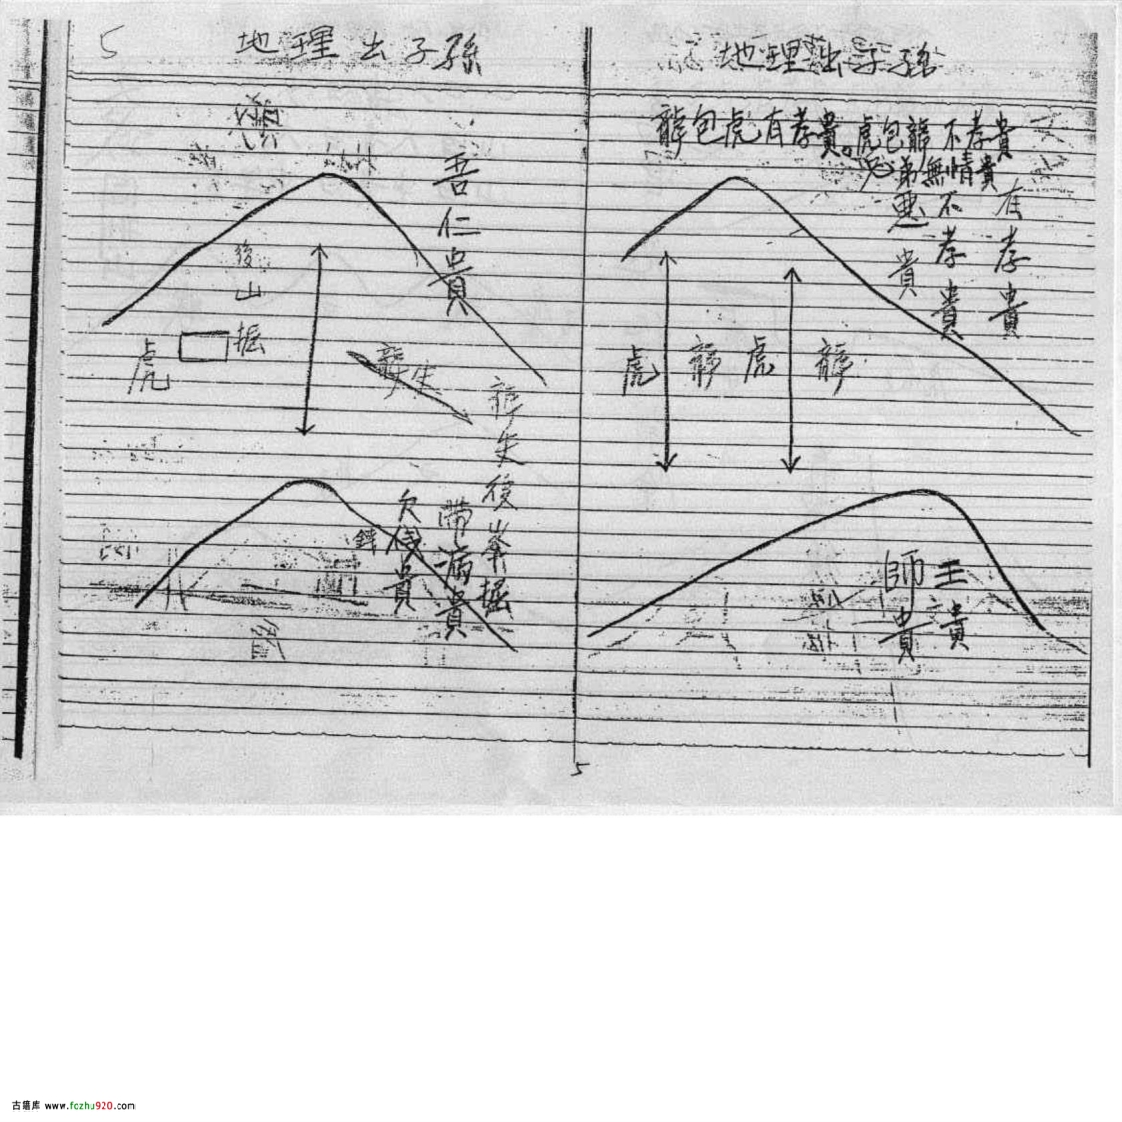 5 地理出子孫
吾仁貴
後山
掘
虎
龍失
龍失後峯掘
帶滿貴
欠貴
地理出子孫
龍包虎有孝貴。虎包龍不孝貴
兄弟無情貴
有孝貴
不孝貴
惡貴
虎 龍 虎 龍
師貴
王貴
5
古籍库 www.fczhu920.com